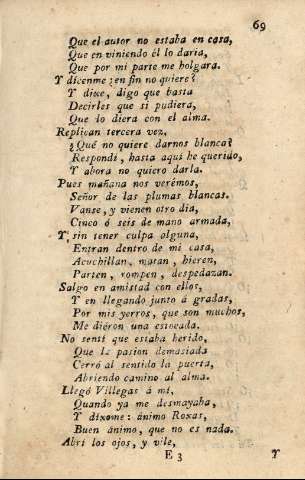 69
Que el autor no estaba en casa,
Que en viniendo él lo daria,
Que por mi parte me holgara.
Y dicenme: en fin no quiere?
Y dixe, digo que basta
Decirles que si pudiera,
Que lo diera con el alma.
Replican tercera vez,
¿Qué no quiere darnos blanca?
Respondí, hasta aquí he querido,
Y ahora no quiero darla.
Pues mañana nos verémos,
Señor de las plumas blancas.
Vanse, y vienen otro dia,
Cinco ó seis de mano armada,
Y sin tener culpa alguna,
Entran dentro de mi casa,
Acuchillan, matan, hieren,
Parten, rompen, despedazan.
Salgo en amistad con ellos,
Y en llegando junto á gradas,
Por mis yerros, que son muchos,
Me diéron una estocada.
No sentí que estaba herido,
Que la pasion demasiada
Cerró al sentido la puerta,
Abriendo camino al alma.
Llegó Villegas á mí,
Quando ya me desmayaba,
Y díxome: ánimo Roxas,
Buen ánimo, que no es nada.
Abrí los ojos, y vile,
E 3 Y